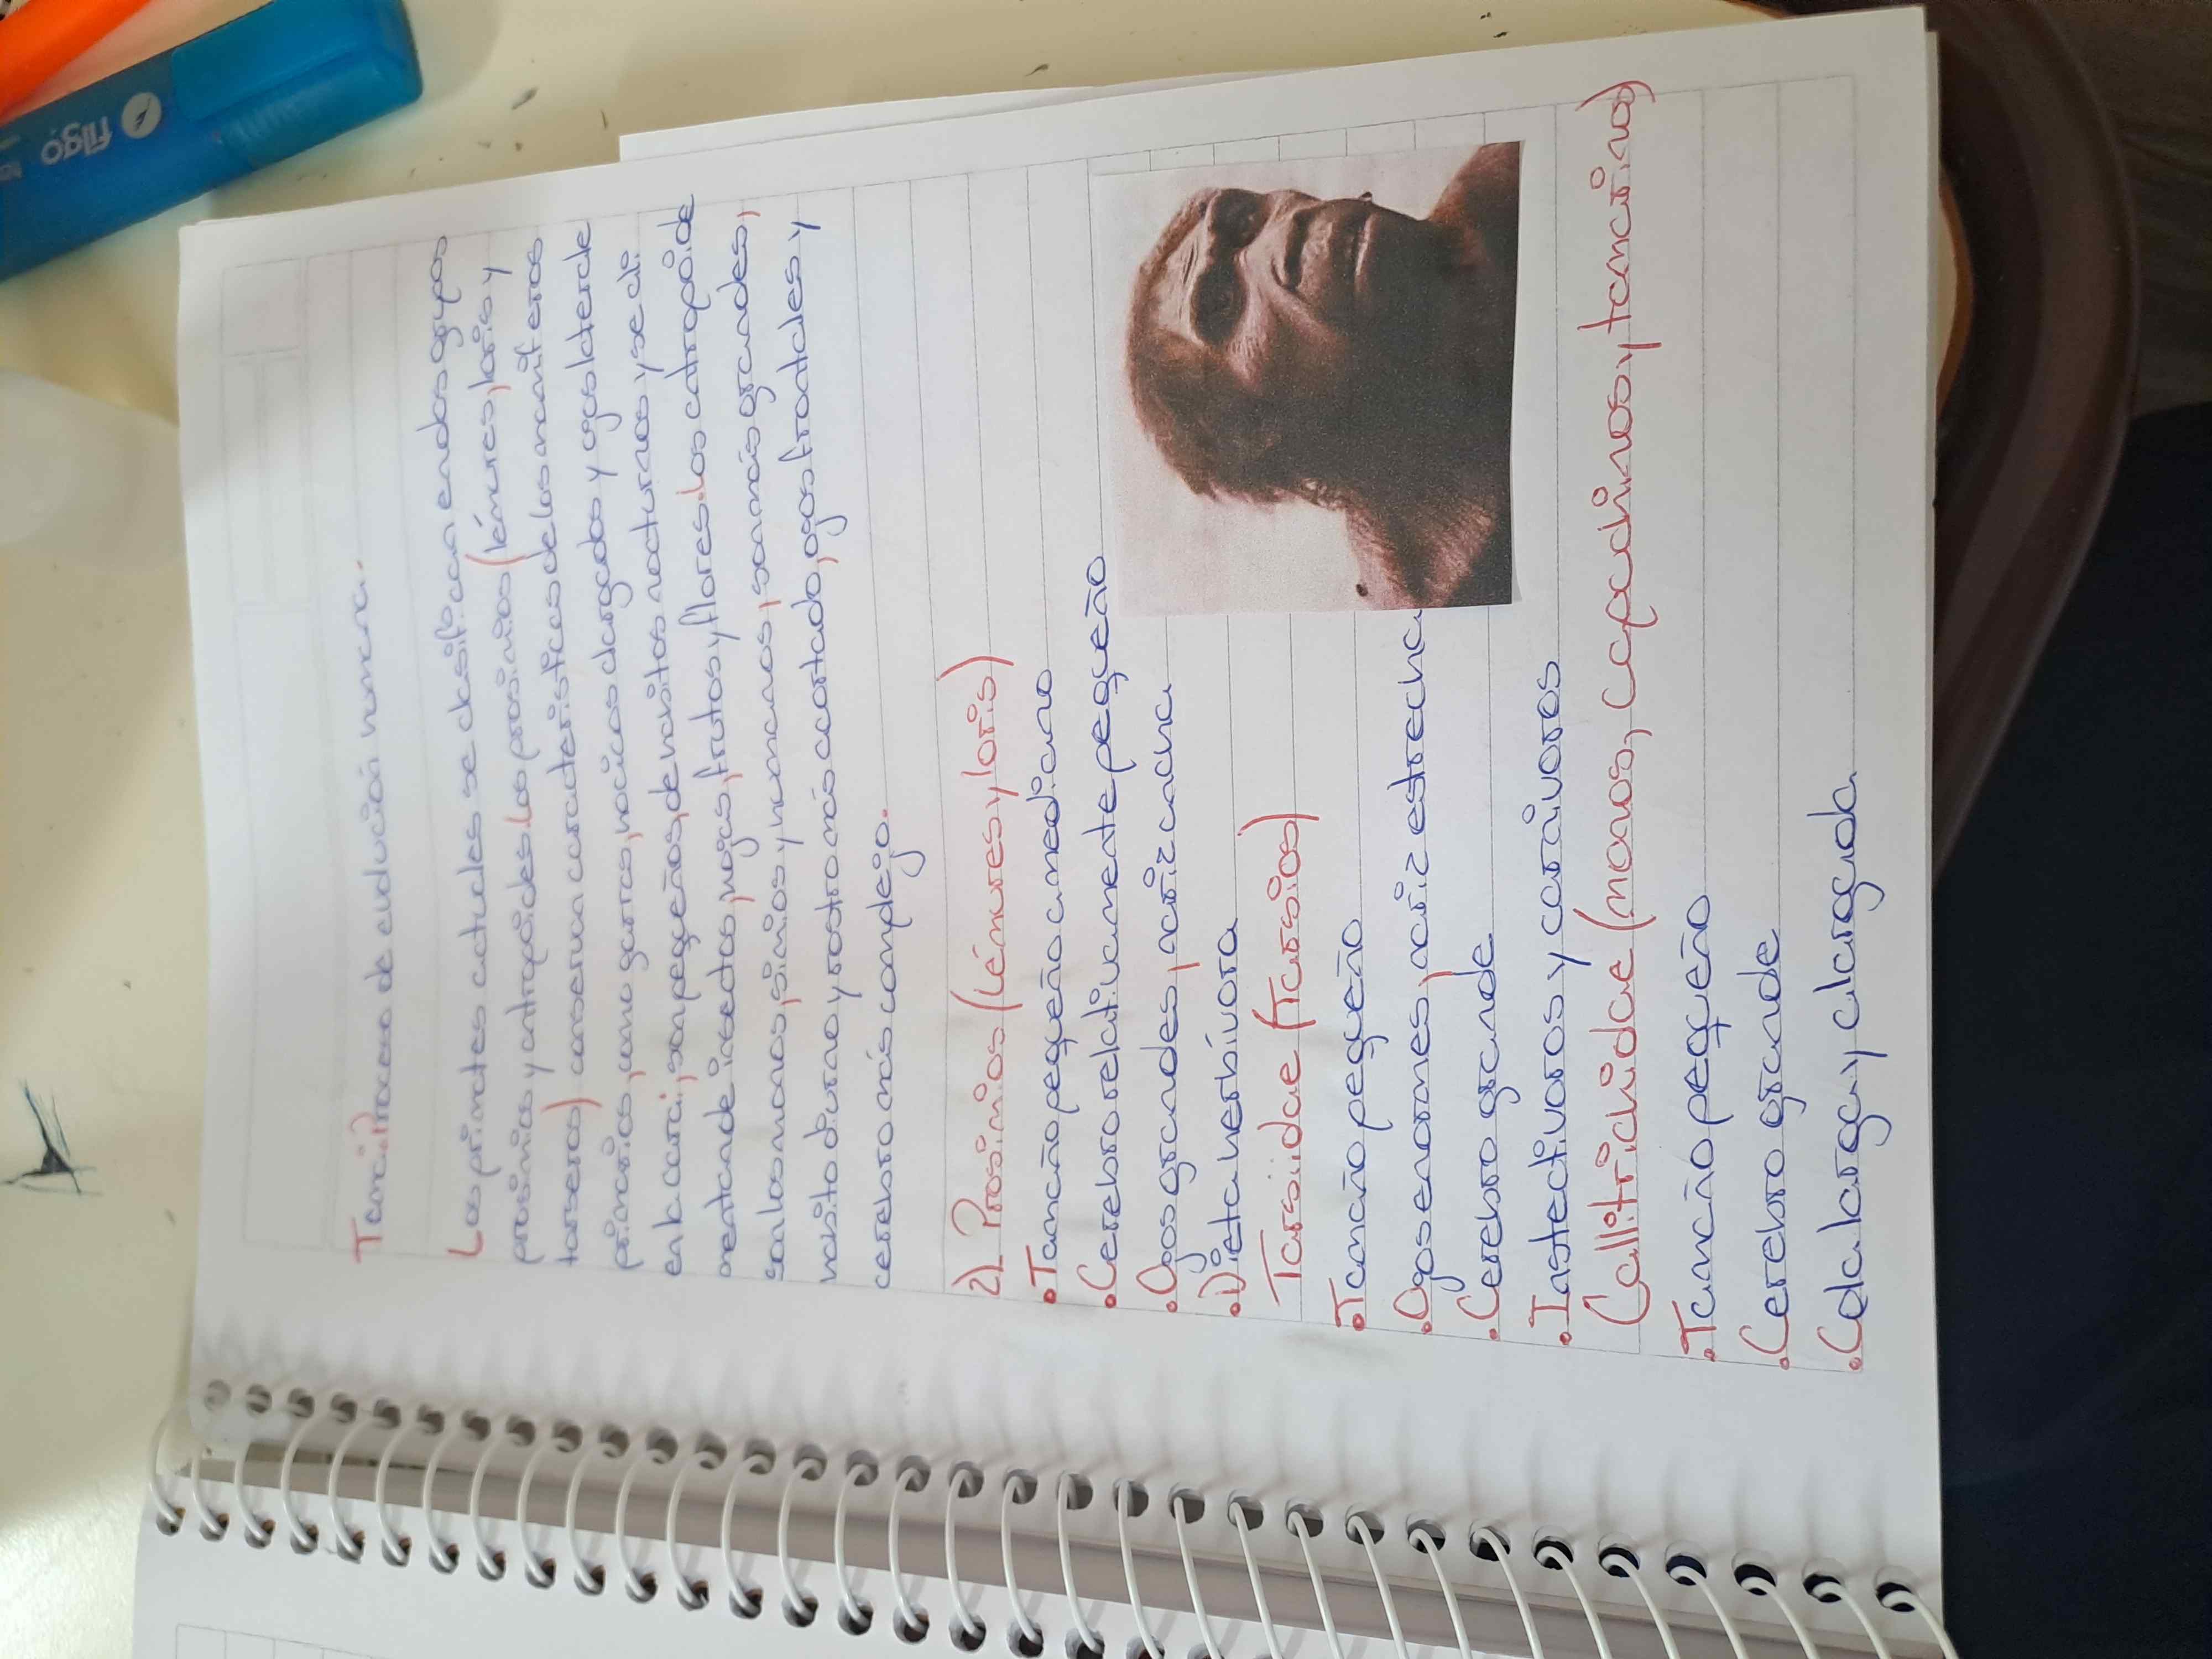 filgo
Tema: Proceso de evolución humana.
Los primates actuales se clasifican en dos grupos
prosimios y antropoides. Los prosimios (lémures, loris y
tarseros) conservan características de los mamíferos
primarios, como garras, hocicos alargados y ojos laterde
en la cara; son pequeños, de habitos nocturnos y se ali
mentan de insectos, hojas, frutos y flores. Los antropoide
son los monos, simios y humanos, son más grandes,
habito diurno y rostro más acortado, ojos frontales y
cerebro más complejo.
2) Prosimios (Lémures y loris)
• Tamaño pequeño a mediano
• Cerebro relativamente pequeño
• Ojos grandes, nariz ancha
• Dieta herbívora
Tarsiidae (Tarsios)
• Tamaño pequeño
• Ojos enormes, nariz estrecha
• Cerebro grande
• Insectivoros y carnivoros
Callitrichidae (monos, capuchinos y tamarinos)
• Tamaño pequeño
• Cerebro grande
• Cola larga y alargada